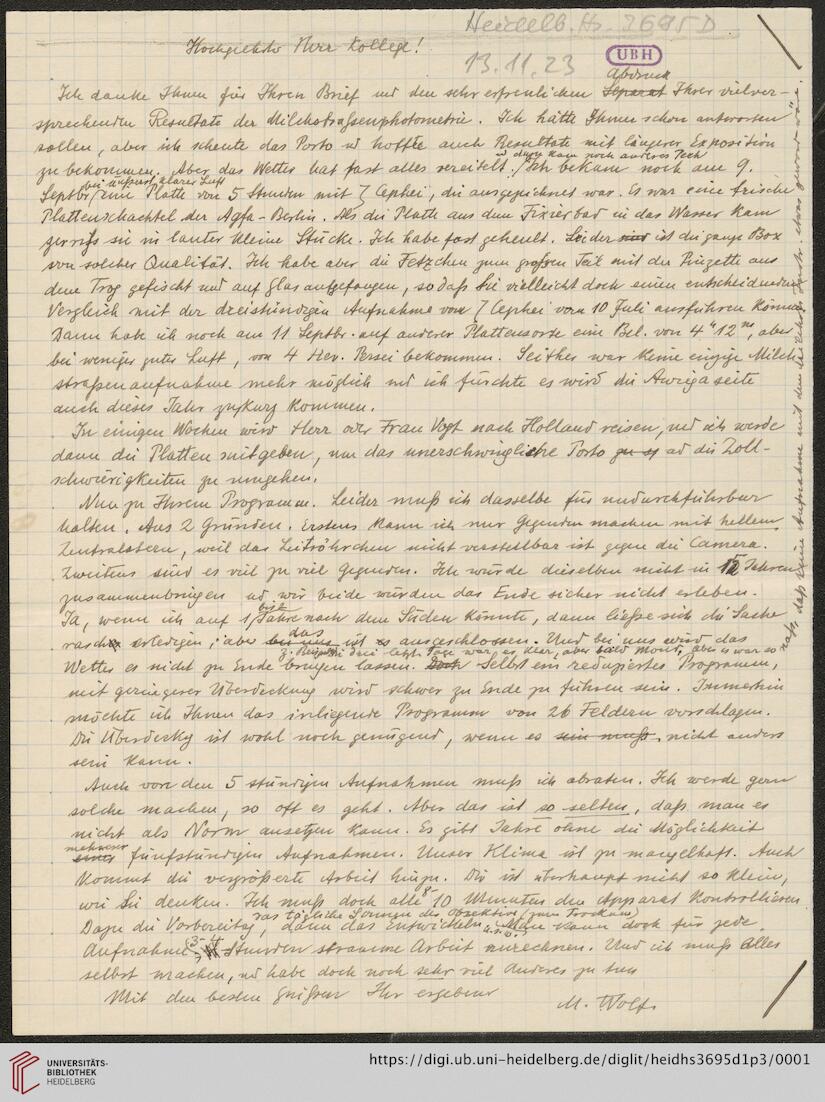 Heidelb. Hs. 3695 D
Hochgeehrter Herr Kollege!
13.11.23
UBH
Abdruck
Ich danke Ihnen für Ihren Brief und den sehr erfreulichen Separat Ihrer vielver-
sprechenden Resultate der Milchstraßenphotometrie. Ich hätte Ihnen schon antworten
sollen, aber ich scheute das Porto u hoffte auch Resultate mit längerer Exposition
u dazu kam noch anderes Pech
zu bekommen. Aber das Wetter hat fast alles vereitelt. Ich bekam noch am 9.
bei äußerst klarer Luft
Septbr eine Platte von 5 Stunden mit ζ Cephei, die ausgezeichnet war. Es war eine frische
Plattenschachtel der Agfa-Berlin. Als die Platte aus dem Fixierbad in das Wasser kam
zerriss sie in lauter kleine Stücke. Ich habe fast geheult. Leider sind ist die ganze Box
von solcher Qualität. Ich habe aber die Fetzchen zum großen Teil mit der Pinzette aus
dem Trog gefischt und auf Glas aufgefangen, so daß Sie vielleicht doch einen entscheidenden
Vergleich mit der dreistündigen Aufnahme von ζ Cephei vom 10 Juli ausführen können.
Dann habe ich noch am 11 Septbr. auf anderer Plattensorte eine Bel. von 4h 12m, aber
bei weniger guter Luft, von 4 Hev. Persei bekommen. Seither war keine einzige Milch-
straßenaufnahme mehr möglich und ich fürchte es wird die Aurigaseite
auch dieses Jahr zu kurz kommen.
In einigen Wochen wird Herr oder Frau Vogt nach Holland reisen, und ich werde
dann die Platten mitgeben, um das unerschwingliche Porto zu ad die Zoll-
schwierigkeiten zu umgehen.
Nun zu Ihrem Programm. Leider muß ich dasselbe für undurchführbar
halten. Aus 2 Gründen. Erstens kann ich nur Gegenden machen mit hellem
Zentralstern, weil das Leitröhrchen nicht verstellbar ist gegen die Camera.
Zweitens sind es viel zu viel Gegenden. Ich würde dieselben nicht in 15 Jahren
zusammenbringen ud wir beide würden das Ende sicher nicht erleben.
Ja, wenn ich auf 1 Jahr nach dem Süden könnte, dann ließe sich die Sache
das
rasch erledigen; aber bei uns ist es ausgeschlossen. Und bei uns wird das
z. Beispiel die letzt. Tage war es klar, aber Mond, aber es war so
Wetter es nicht zu Ende bringen lassen. Doch Selbst ein reduziertes Programm,
mit geringerer Überdeckung wird schwer zu Ende zu führen sein. Immerhin
möchte ich Ihnen das inliegende Programm von 26 Feldern vorschlagen.
Die Überdeckg ist wohl noch genügend, wenn es sein muß, nicht anders
sein kann.
Auch von den 5 stündigen Aufnahmen muß ich abraten. Ich werde gern
solche machen, so oft es geht. Aber das ist so selten, daß man es
nicht als Norm ansetzen kann. Es gibt Jahre ohne die Möglichkeit
mehrerer
einer fünfstündigen Aufnahmen. Unser Klima ist zu mangelhaft. Auch
kommt die vergrößerte Arbeit hinzu. Die ist überhaupt nicht so klein,
wie Sie denken. Ich muß doch alle 8-10 Minuten den Apparat kontrollieren.
das tägliche Reinigen des Objektivs (zum Trocknen)
Dazu die Vorbereitg, dann das Entwickeln u.s.w. Man kann doch für jede
Aufnahme 3-4 Stunden stramme Arbeit anrechnen. Und ich muß alles
selbst machen, ud habe doch noch sehr viel Anderes zu tun
Mit den besten Grüßen Ihr ergebener
M. Wolf.
naß, daß keine Aufnahme mit dem etwas geworden wäre.
UNIVERSITÄTS-
BIBLIOTHEK
HEIDELBERG
https://digi.ub.uni-heidelberg.de/diglit/heidhs3695d1p3/0001